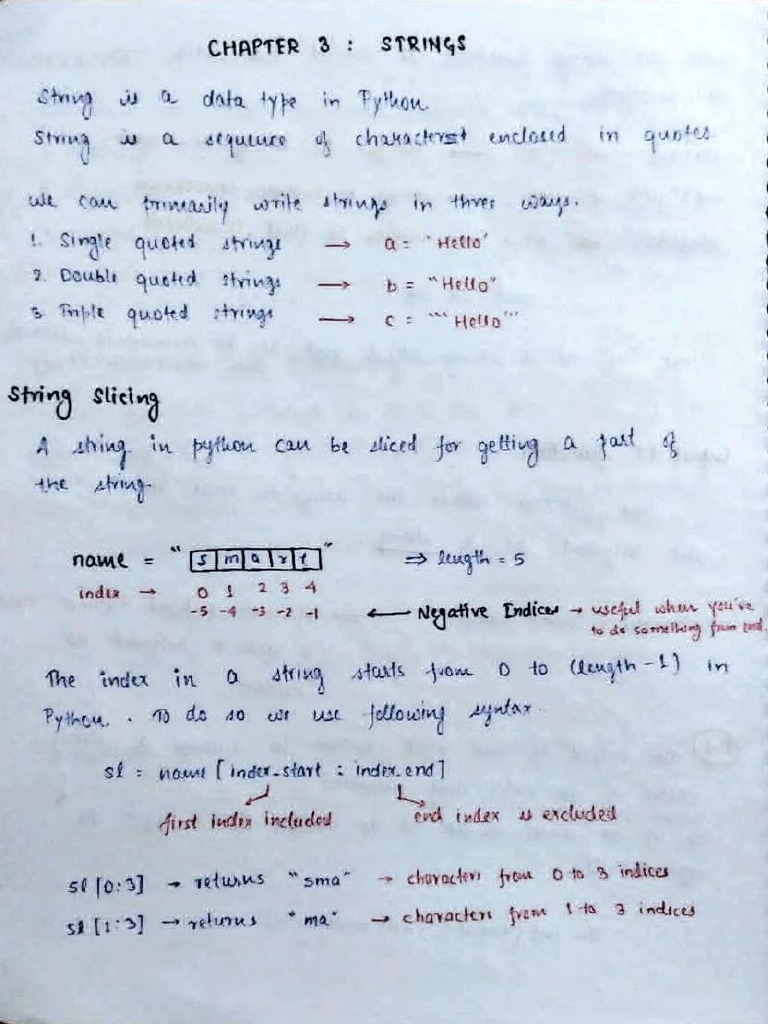 CHAPTER 3 : STRINGS
String is a data type in Python.
String is a sequence of characterst enclosed in quotes.
We can primarily write strings in three ways.
1. Single quoted strings → a = 'Hello'
2. Double quoted strings → b = "Hello"
3. Triple quoted strings → c = '''Hello'''
String Slicing
A string in python can be sliced for getting a part of
the string.
name = "smart" ⇒ length = 5
index → 0 1 2 3 4
-5 -4 -3 -2 -1 ← Negative Indices → useful when you've
to do something from end.
The index in a string starts from 0 to (length - 1) in
Python. . To do so we use following syntax
sl = name [index_start : index_end]
first index included end index is excluded
sl [0:3] → returns "sma" → characters from 0 to 3 indices
sl [1:3] → returns "ma" → characters from 1 to 3 indices